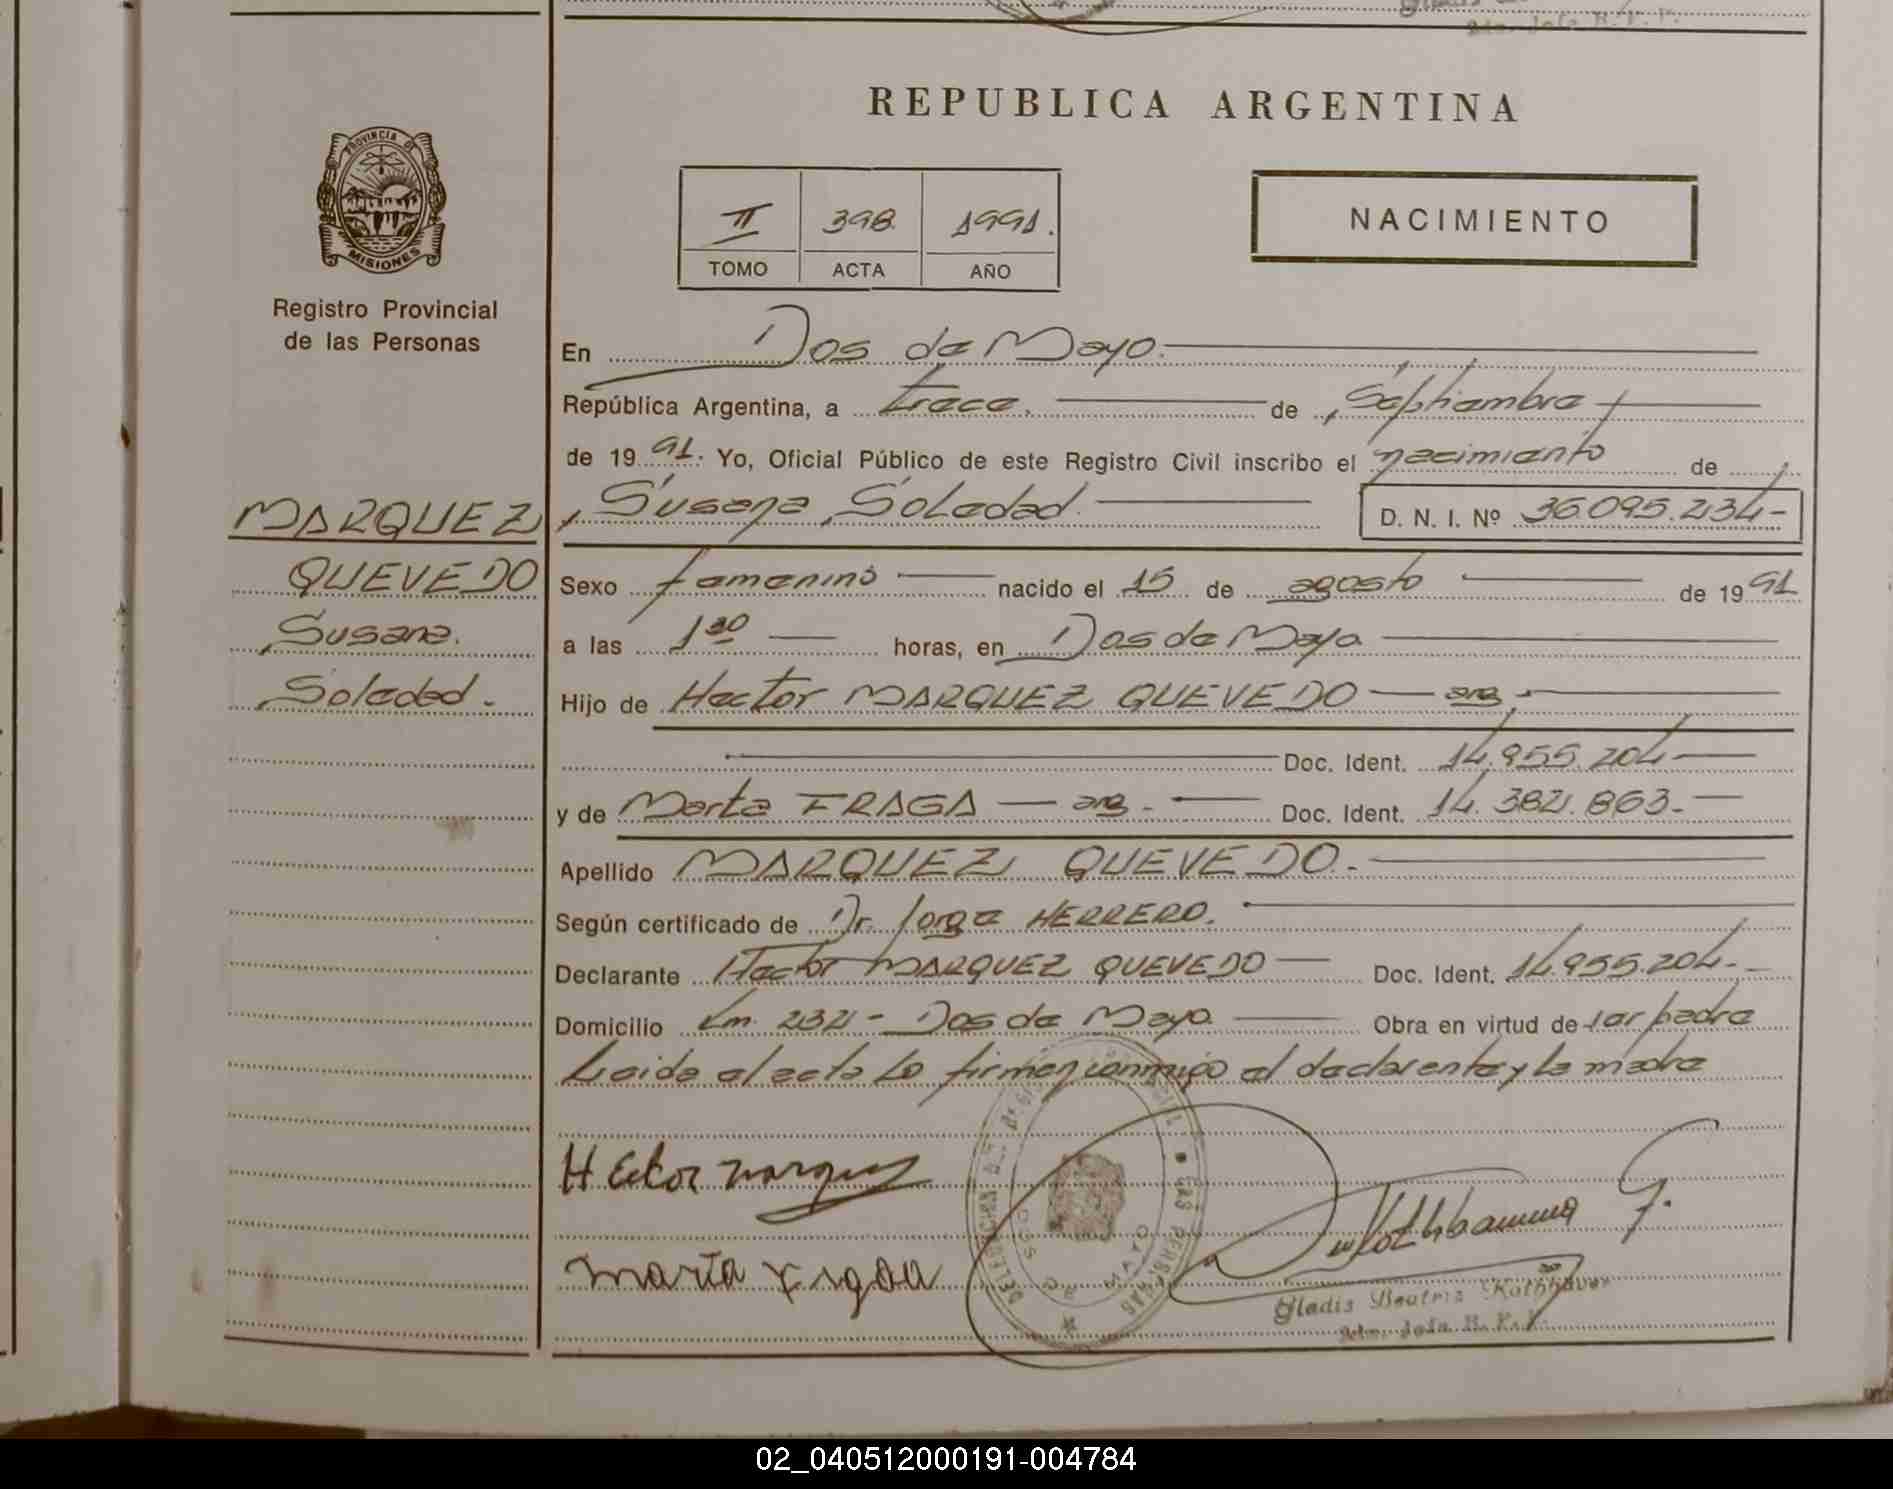 REPUBLICA ARGENTINA
PROVINCIA DE
MISIONES
Registro Provincial
de las Personas
II 398 1991.
TOMO ACTA AÑO
NACIMIENTO
En Dos de Mayo.
República Argentina, a trece. de Septiembre
de 1991. Yo, Oficial Público de este Registro Civil inscribo el nacimiento de
Susana Soledad. D. N. I. Nº 36.095.234-
MARQUEZ
QUEVEDO
Susana.
Soledad.
Sexo femenino nacido el 15 de agosto de 1991
a las 1 30 horas, en Dos de Mayo
Hijo de Hector MARQUEZ QUEVEDO arg.
Doc. Ident. 14.955.204
y de Marta FRAGA arg. Doc. Ident. 14.382.863.
Apellido MARQUEZ QUEVEDO.
Según certificado de Dr. Jorge HERRERO.
Declarante Hector MARQUEZ QUEVEDO Doc. Ident. 14.955.204.
Domicilio Km. 232 - Dos de Mayo. Obra en virtud de ser padre
Leida el acta lo firman conmigo el declarante y la madre
Hector Marquez
DELEGACION
LAS PERSONAS
DOS DE MAYO
Gladis Beatriz
02_040512000191-004784